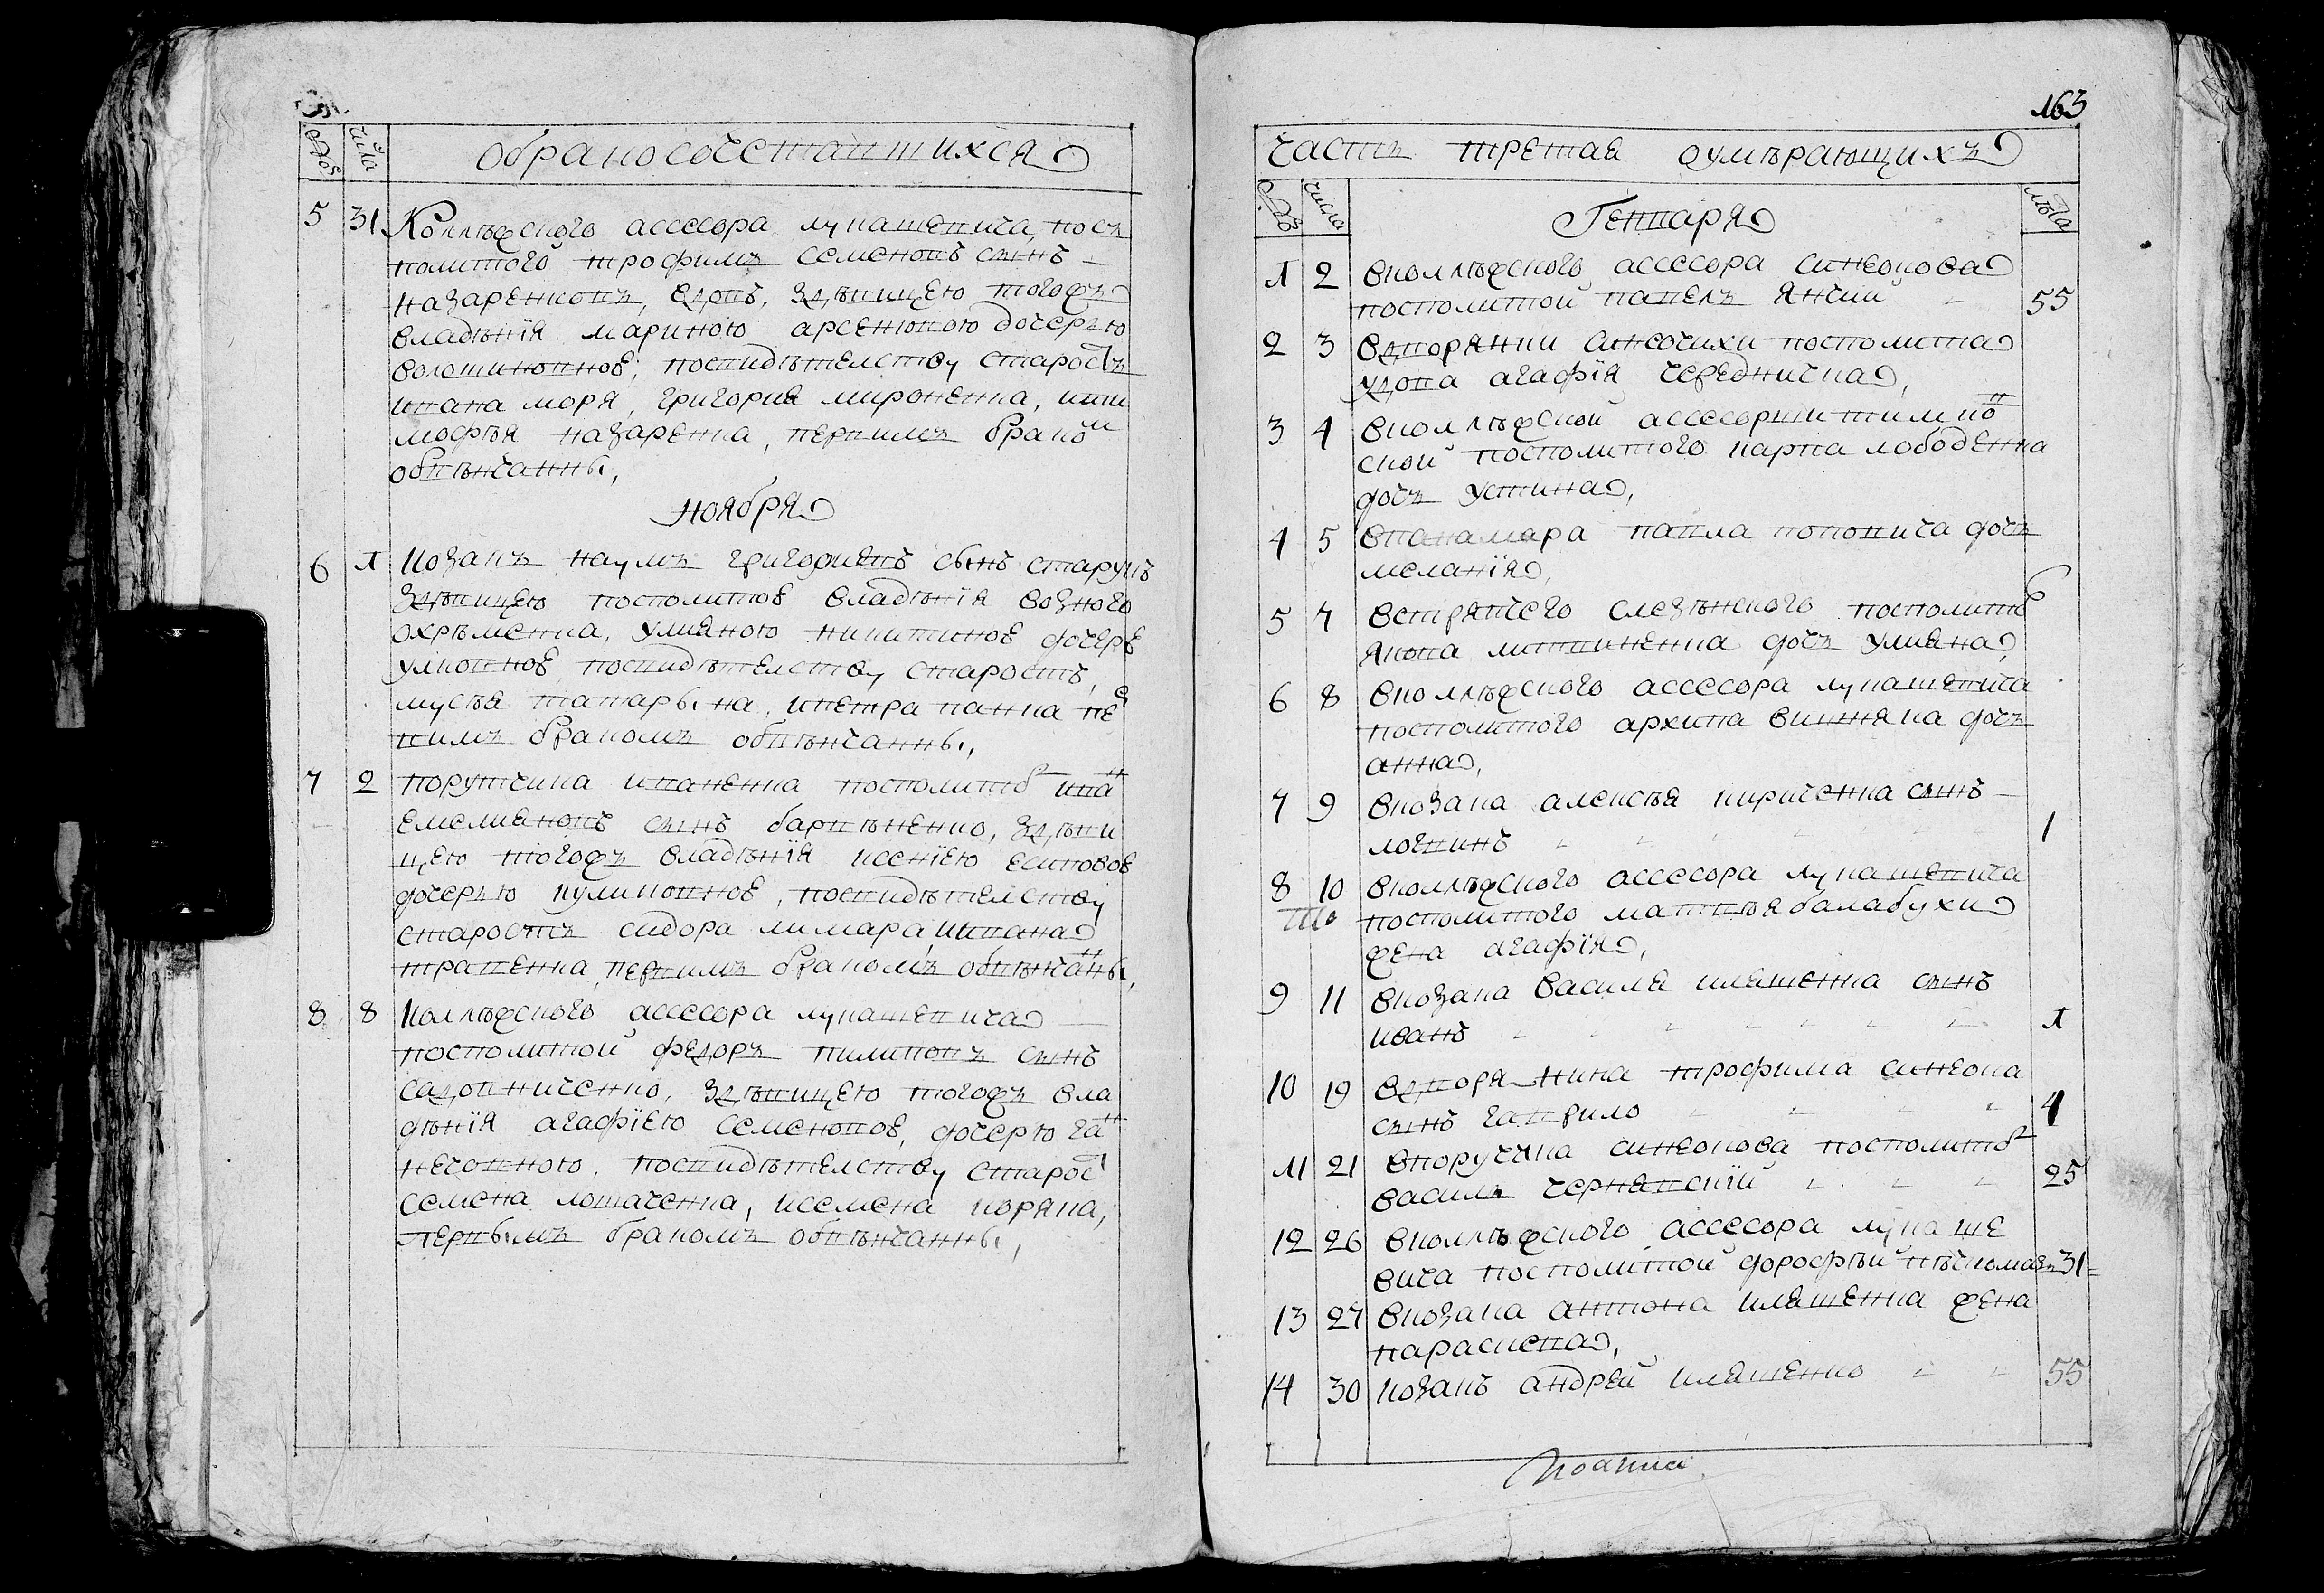 обракосочетавшихся
числа
5 31 Коллѣжского ассесора лукашевича, посъ
политого трофимъ семеновъ сынъ
назаренковъ, вдовъ, здѣвицею тогожъ
владѣнїя мариною арсеновою дочерю
волошиновное, посвидѣтелству старостъ
ивана моря, григория мироненка, ити
мофѣя назаренка, первимъ браком
обвѣнчанны,
ноября
6 1 Козакъ наумъ григориевъ сынъ старунъ
здѣвицею посполитое владѣнїя возного
охрѣменка, улияною никитиное дочере
улковное посвидѣтелству старостъ,
мусѣя татарына, ипетра панка пе
вимъ бракомъ обвѣнчанны,
7 2 порутчика иваненка посполитог иван
емелияновъ сынъ барвѣненко, здѣви
цею тогожъ владѣнїя ксенїею есиповое
дочерю куликовное, посвидѣтелству
старостъ сидора лимара, иивана
траценка, первимъ бракомъ обвѣнчаны,
8 8 Коллѣжского ассесора лукашевича
посполитой федоръ пилиповъ сынъ
садовниченко, здѣвицею тогожъ вла
дѣнїя агафїею семеновое, дочерю ган
нечовною, посвидѣтелству старост
семена лошаченка, исемена коряка,
первымъ бракомъ обвѣнчанны,
163
часть третая оумѣрающихъ
числа
лѣта
Генваря
1 2 вколлѣжского ассесора синеокова
посполитой павелъ янчий 55
2 3 вдворянки синеочихи посполитая
удова агафїя чередничка,
3 4 вколлѣжской ассесорши тимков
ской посполитого карпа лободенка
дочь устина,
4 5 впанамара павла поповича дочъ
меланїя,
5 7 встряпчего слезѣнского посполитое
якова литвиненка дочъ улияна,
6 8 вколлѣжского ассесора лукашевича
посполитого архипа вишняка дочъ
анна,
7 9 вкозака алексѣя кириченка сынъ
логвинъ 1
8 10 вколлѣжского ассесора лукашевича
посполитого матвѣя балабухи
жена агафїя,
9 11 вкозака василя иляшенка сынъ
иванъ 1
10 19 вдворянина трофима синеока
сынъ гаврило 4
11 21 впоручика синеокова посполитог
василь чернявский 25
12 26 вколлѣжского ассесора лукаше
вича посполитой дорофѣй 31
13 27 вкозака антона иляшенка жена
параскева,
14 30 козакъ андрей иляшенко 55